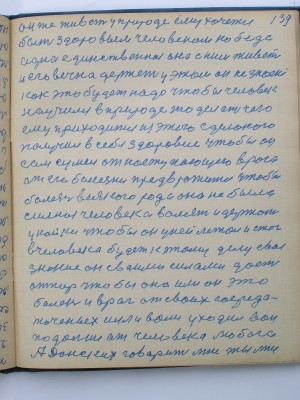 он же живет у природе ему хочется 139
быть здоровым человеком но беда
одна единственная она с ним живет
и его вечно держит у этом он не знает
как это будет надо чтобы человек
научился в природе это делать чего
ему приходится из этого сделанного
получил в себя здоровие чтобы он
сам сумел от наступающего врага
от его болезни предвражится чтобы
болезнь всякого рода она не была
сильней человека валять и держать
у койки чтобы он у ней летом и смог
в человека будет к этому делу свое
знание он своими силами даст
отпор чтобы она или он это
болезнь и враг от своих сосредо-
точеных сил и воли уходил вон
подальше от человека любого
А Донских говорит мне ты ми